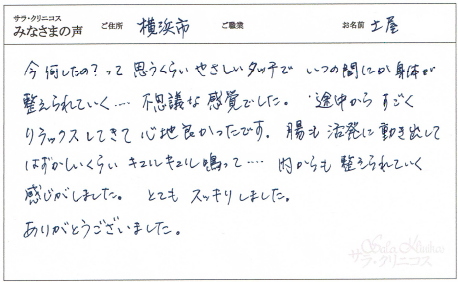 サラ・クリニコス
みなさまの声 ご住所 横浜市 ご職業 お名前 土屋
今何したの？って思うくらいやさしいタッチでいつの間にか身体が
整えられていく… 不思議な感覚でした。途中からすごく
リラックスしてきて心地良かったです。腸も活発に動き出して
はずかしいくらいキュルキュル鳴って…. 内からも整えられていく
感じがしました。とてもスッキリしました。
ありがとうございました。
サラ・クリニコス